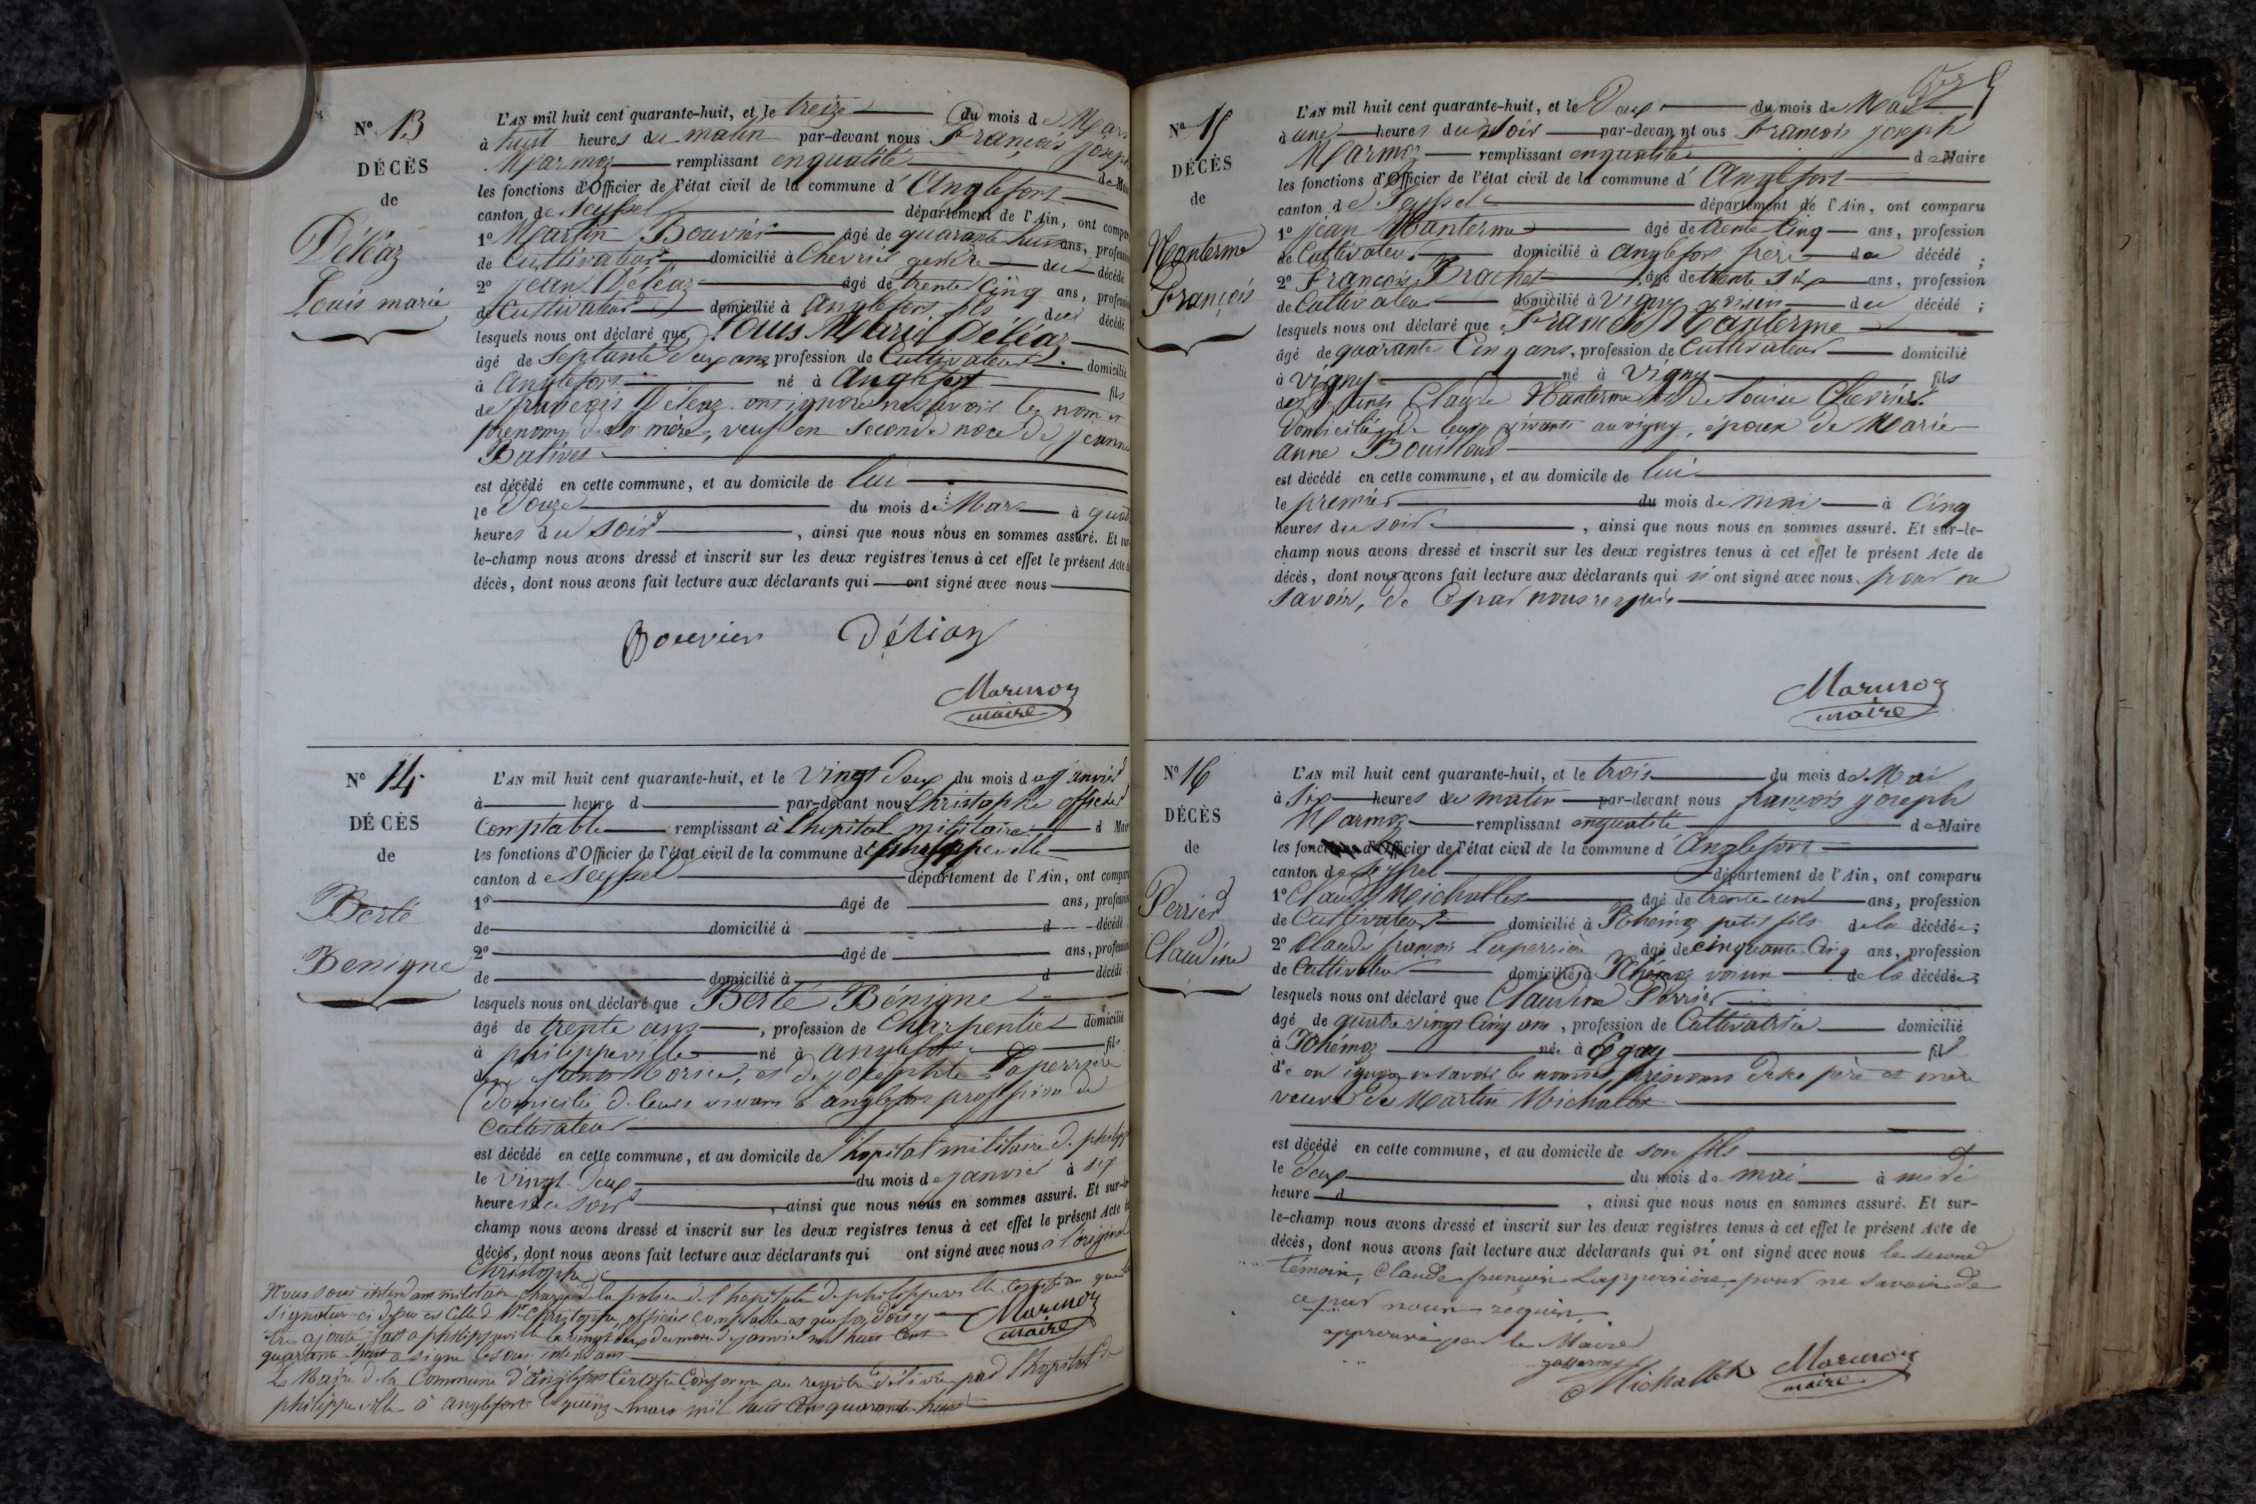 N° 13
DÉCÈS
de
Déléaz
Louis marie
L'AN mil huit cent quarante-huit, et le treize du mois de Mars
à huit heures du matin par-devant nous François joseph
Marmoz remplissant en qualité de Maire
les fonctions d'Officier de l'état civil de la commune d' Anglefort
canton de Seyssel département de l'Ain, ont comparu
1° Martin Bouvier âgé de quarante huit ans, profession
de Cultivateur domicilié à Chevrier gendre du décédé
2° jean Déléaz âgé de trente cinq ans, profession
de Cultivateur domicilié à Anglefort fils du décédé
lesquels nous ont déclaré que Louis Marie Déléaz
âgé de Septante deux ans profession de Cultivateur domicilié
à Anglefort né à Anglefort fils
de françois Déléaz ont ignoré ne savoir les nom et
prenoms de sa mère, veuf en seconde noce de jeanne
est décédé en cette commune, et au domicile de lui
le Douze du mois de Mars à
heures du soir , ainsi que nous nous en sommes assuré. Et sur-
le-champ nous avons dressé et inscrit sur les deux registres tenus à cet effet le présent Acte
décès, dont nous avons fait lecture aux déclarants qui ont signé avec nous
Bouvier Déléaz
Marmoz
maire
N° 14
DÉCÈS
de
Berté
Benigne
L'AN mil huit cent quarante-huit, et le vingt deux du mois de janvier
à heure d par-devant nous Christophe officier
Comptable remplissant à l'hopital militaire d Maire
les fonctions d'Officier de l'état civil de la commune de philippeville
canton de Seyssel département de l'Ain, ont comparu
1° âgé de ans, profession
de domicilié à d décédé
2° âgé de ans, profession
de domicilié à d décédé
lesquels nous ont déclaré que Berté Bénigne
âgé de trente ans , profession de Charpentier domicilié
à philippeville né à anglefort fils
et de josephte Laperrière
domicilié de leurs vivans à anglefort profession de
Cultivateur
est décédé en cette commune, et au domicile de l'hopital militaire de
le vingt-deux du mois de janvier à six
heures du soir , ainsi que nous nous en sommes assuré. Et sur-le-
champ nous avons dressé et inscrit sur les deux registres tenus à cet effet le présent Acte
décès, dont nous avons fait lecture aux déclarants qui ont signé avec nous à l'original
Christophe
Nous sous intendant militaire chargé de la police de l'hopital de philippeville certifions que la
signature ci dessus est celle de Mr Christophe, officier comptable et que foi doit y
être ajoutée fait à philippeville le vingt deux du mois de janvier mil huit cent
quarante huit a signé le sous intendant
Marmoz
maire
Le Maire de la Commune d'anglefort certifie conforme au registre délivré par l'hopital de
philippeville à anglefort le quinze mars mil huit cent quarante huit
N° 15
DÉCÈS
de
Nanterme
François
L'AN mil huit cent quarante-huit, et le Deux du mois de Mai
à une heures du soir par-devant nous François joseph
Marmoz remplissant en qualité de Maire
les fonctions d'Officier de l'état civil de la commune d' Anglefort
canton de Seyssel département de l'Ain, ont comparu
1° jean Nanterme âgé de trente cinq ans, profession
de Cultivateur domicilié à Anglefort frère du décédé ;
2° François Brachet âgé de trente six ans, profession
de Cultivateur domicilié à vigny voisin du décédé ;
lesquels nous ont déclaré que François Nanterme
âgé de quarante cinq ans, profession de Cultivateur domicilié
à vigny né à vigny fils
Claude Nanterme et de Louise Chevrier
Domicilié de leur vivants au vigny, époux de Marie
anne Bouilloud
est décédé en cette commune, et au domicile de lui
le premier du mois de mai à cinq
heures du soir , ainsi que nous nous en sommes assuré. Et sur-le-
champ nous avons dressé et inscrit sur les deux registres tenus à cet effet le présent Acte de
décès, dont nous avons fait lecture aux déclarants qui n'ont signé avec nous pour ne
savoir, de ce par nous requis
Marmoz
maire
N° 16
DÉCÈS
de
Perrier
Claudine
L'AN mil huit cent quarante-huit, et le trois du mois de Mai
à six heures du matin par-devant nous françois joseph
Marmoz remplissant en qualité de Maire
les fonctions d'Officier de l'état civil de la commune d' Anglefort
canton de Seyssel département de l'Ain, ont comparu
1° Claude Michallet âgé de trente un ans, profession
de Cultivateur domicilié à petit fils de la décédée ;
2° Claude françois Laperrière âgé de cinquante cinq ans, profession
de Cultivateur domicilié à voisin de la décédée ;
lesquels nous ont déclaré que Claudine Perrier
âgé de quatre vingt cinq ans , profession de Cultivatrice domicilié
à né à fil
d'e on ignore ne savoir les noms et prénoms de ses père et mère
veuve de Martin Michallet
est décédé en cette commune, et au domicile de son fils
le deux du mois de mai à midi
heure d , ainsi que nous nous en sommes assuré. Et sur-
le-champ nous avons dressé et inscrit sur les deux registres tenus à cet effet le présent Acte de
décès, dont nous avons fait lecture aux déclarants qui n'ont signé avec nous le second
temoin, Claude françois Lapperrière pour ne savoir de
ce par nous requis
approuvé par le Maire
Michallet Marmoz
maire